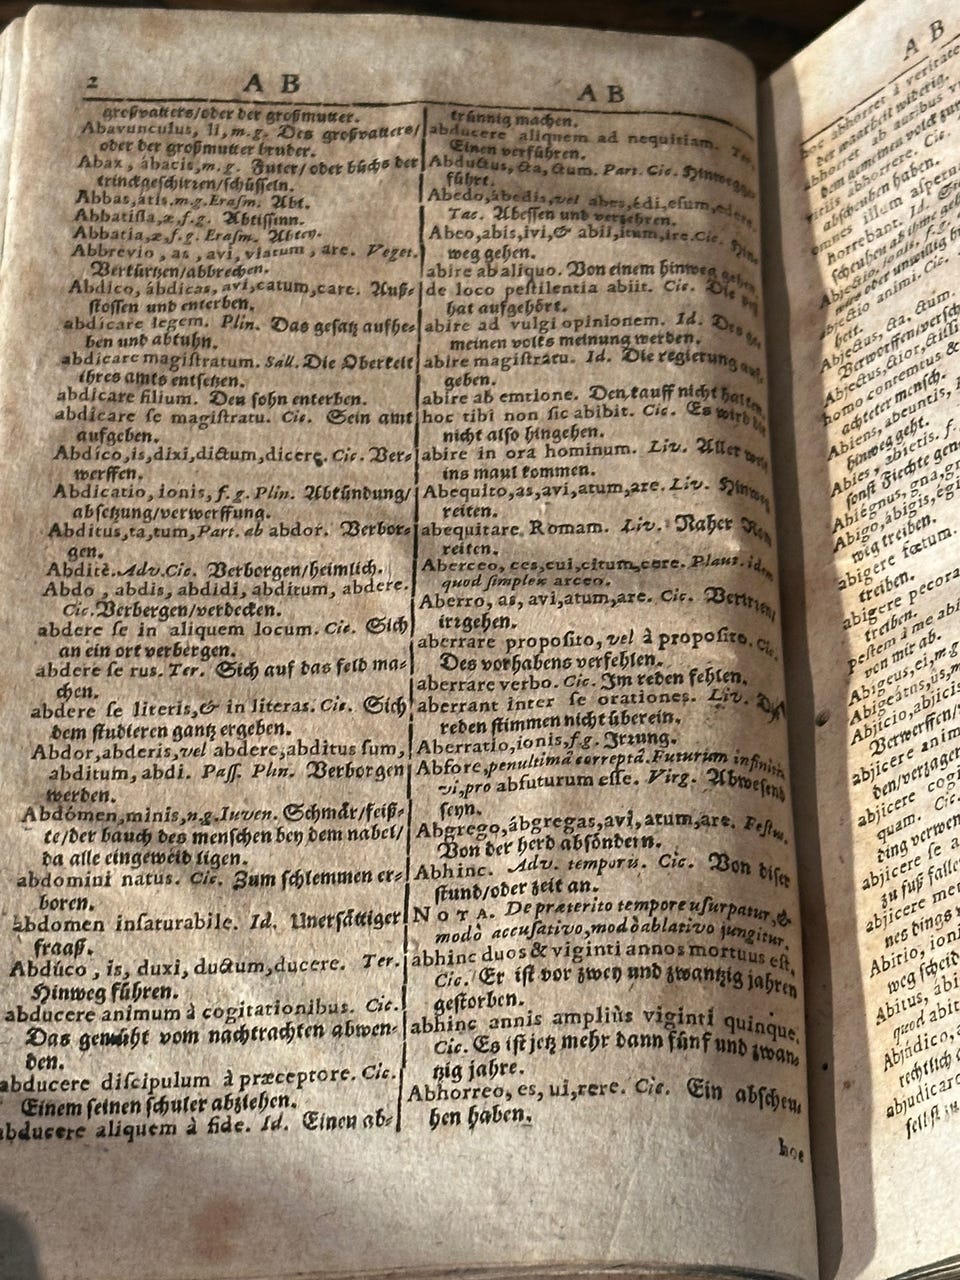 2 A B A B
großvatters/oder der großmutter.
Abavunculus, li, m.g. Des großvatters/
oder der großmutter bruder.
Abax, ábacis, m.g. Zuter/ oder büchs der
trinckgeschirren/schüsseln.
Abbas, átis. m.g. Erasm. Abt.
Abbatissa, æ, f.g. Abtissinn.
Abbatia, æ, f.g. Erasm. Abtey.
Abbrevio, as, avi, viatum, are. Veget.
Verkürtzen/abbrechen.
Abdico, ábdicas, avi, catum, care. Auß-
stossen und enterben.
abdicare legem. Plin. Das gesatz aufhe-
ben und abtuhn.
abdicare magistratum. Sall. Die Oberkeit
ihres amts entsetzen.
abdicare filium. Den sohn enterben.
abdicare se magistratu. Cic. Sein amt
aufgeben.
Abdico, is, dixi, dictum, dicere. Cic. Ver-
werffen.
Abdicatio, ionis, f.g. Plin. Abkündung/
absetzung/verwerffung.
Abditus, ta, tum, Part. ab abdor. Verbor-
gen.
Abditè. Adv. Cic. Verborgen/heimlich.
Abdo, abdis, abdidi, abditum, abdere.
Cic. Verbergen/verdecken.
abdere se in aliquem locum. Cic. Sich
an ein ort verbergen.
abdere se rus. Ter. Sich auf das feld ma-
chen.
abdere se literis, & in literas. Cic. Sich
dem studieren gantz ergeben.
Abdor, abderis, vel abdere, abditus sum,
abditum, abdi. Pass. Plin. Verborgen
werden.
Abdómen, minis, n.g. Iuven. Schmär/feiß-
te/der bauch des menschen bey dem nabel/
da alle eingeweid ligen.
abdomini natus. Cic. Zum schlemmen er-
boren.
abdomen insaturabile. Id. Unersättiger
fraaß.
Abdúco, is, duxi, ductum, ducere. Ter.
Hinweg führen.
abducere animum à cogitationibus. Cic.
Das gemüht vom nachtrachten abwen-
den.
abducere discipulum à præceptore. Cic.
Einem seinen schuler abziehen.
abducere aliquem à fide. Id. Einen ab-
trünnig machen.
abducere aliquem ad nequitiam.
Einen verführen.
Abductus, cta, ctum. Part. Cic. Hinwegge-
führt.
Abedo, ábedis, vel abes, édi, esum, edere.
Tac. Abessen und verzehren.
Abeo, abis, ivi, & abii, itum, ire. Cic. Hin-
weg gehen.
abire ab aliquo. Von einem hinweg gehen
de loco pestilentia abiit. Cic. Die
hat aufgehört.
abire ad vulgi opinionem. Id. Des
meinen volks meinung werden.
abire magistratu. Id. Die regierung auf-
geben.
abire ab emtione. Den kauff nicht halten.
hoc tibi non sic abibit. Cic. Es wird dir
nicht also hingehen.
abire in ora hominum. Liv. Aller welt
ins maul kommen.
Abequito, as, avi, atum, are. Liv. Hinweg
reiten.
abequitare Romam. Liv. Naher Rom
reiten.
Aberceo, ces, cui, citum, cere. Plaut. idem
quod simplex arceo.
Aberro, as, avi, atum, are. Cic. Verirren/
irrgehen.
aberrare proposito, vel à proposito. Cic.
Des vorhabens verfehlen.
aberrare verbo. Cic. Im reden fehlen.
aberrant inter se orationes. Liv. Diese
reden stimmen nicht überein.
Aberratio, ionis, f.g. Irrung.
Abfore, penultimâ correptâ. Futurum infiniti-
vi, pro abfuturum esse. Virg. Abwesend
seyn.
Abgrego, ábgregas, avi, atum, are. Festus.
Von der herd absöndern.
Abhinc. Adv. temporis. Cic. Von diser
stund/oder zeit an.
NOTA. De præterito tempore usurpatur, &
modò accusativo, modò ablativo jungitur.
abhinc duos & viginti annos mortuus est.
Cic. Er ist vor zwey und zwantzig jahren
gestorben.
abhinc annis ampliùs viginti quinque.
Cic. Es ist jetz mehr dann fünf und zwan-
tzig jahre.
Abhorreo, es, ui, rere. Cic. Ein abscheu-
hen haben.
hoc
A B
hoc abhorret à veritate
der warheit widerig.
abhorret ab auribus
dem gemeinen volck
abhorrere. Cic.
abscheuhen haben.
omnes illum aspernabantur
horrebant. Id.
scheuhen ab ihme
Abjectio, ionis, f.g.
abjectio animi. Cic.
heit.
Abjectus, cta, ctum.
Verworffen/
Abjectus, ctior, ctissi
homo contemtus &
achteter mensch.
Abiens, abeuntis,
hinweg geht.
Abies, abietis. f.
sonst Fiechte gen
Abiegnus, gna, gn
Abigo, ábigis, égi
weg treiben.
abigere fœtum.
treiben.
abigere pecora
treiben.
pestem à me abi
von mir ab.
Abigeus, ei, m.g
Abigeátus, ûs, m
Abjicio, abjicis
Verwerffen/
abjicere anim
den/verzager
abjicere cogi
quam. Cic.
ding verwer
abjicere se a
zu fuß falle
abjicere met
nes dings
Abitio, ioni
weg scheid
Abitus, abi
quod abit
Abjúdico, a
rechtlich
abjudicare
selbst zu